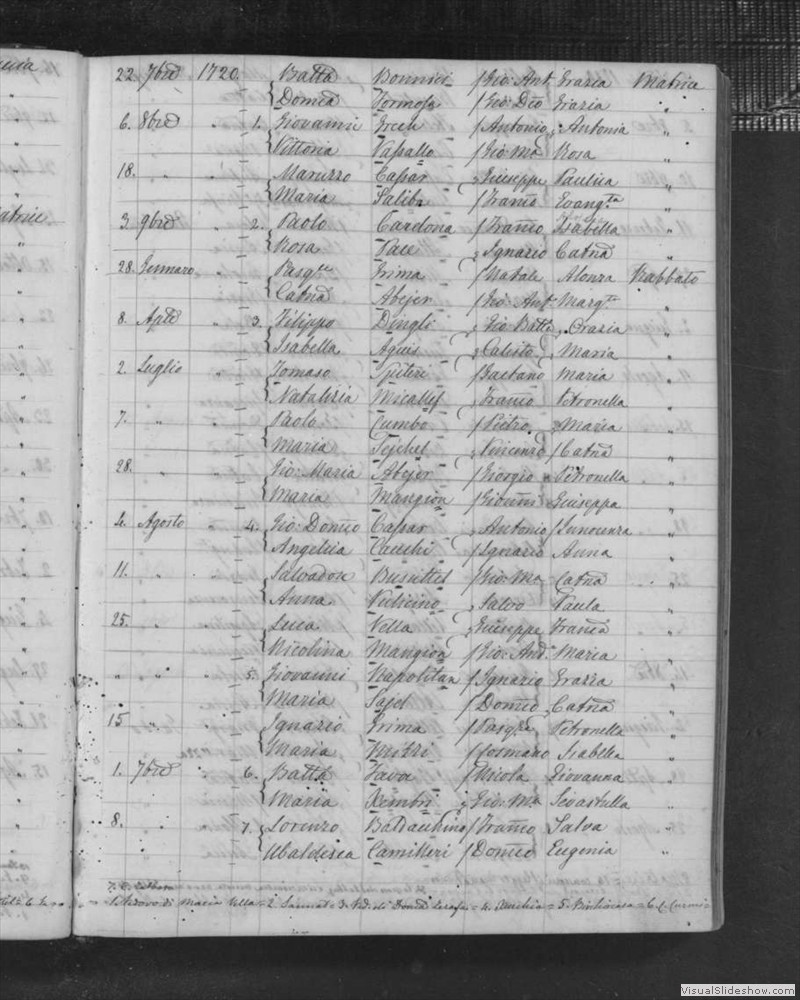 22. 7bre 1720 Batta Bonnici / Gio: Ant. Grazia Matrice
Domca Formosa / Gio: Dco Grazia "
6. 8bre " 1. Giovanni Grech / Antonio Antonia "
Vittoria Vassallo / Gio: Ma Rosa "
18. " " Maruzzo Cassar Giuseppe Paulica "
Maria Saliba / Franco Evangta "
3. 9bre " 2. Paolo Cardona / Franco Isabella "
Rosa Pace Ignazio Catna "
28. Gennaro " Pasqle Grima / Natale Alonza Rabbato
Catna Abejer / Gio: Ant. Margta
8. Aple " 3. Filippo Dingli Gio Batta Grazia "
Isabella Agius Calisto Maria "
2. Luglio " Tomaso Spiteri / Gaetano Maria "
Natalizia Micallef Franco Petronella "
7. " " Paolo Cumbo / Pietro Maria "
Maria Vincenzo / Catna "
28. " Gio: Maria Abejer / Giorgio Petronella "
Maria Mangion / Gioanni Giuseppa "
4. Agosto " 4. Gio: Domco Cassar Antonio / Innocenza "
Angelica Cauchi / Ignazio Anna "
11. " . Salvadore Busuttil / Gio: Ma Catna "
Anna Pulicino Salvo Paula "
25. " Luca Vella Giuseppe Franca "
Nicolina Mangion / Gio: And. Maria "
" " " 5. Giovanni Napolitan / Ignazio Grazia "
Maria / Domco Catna "
15 " Ignazio Grima / Pasqle Petronella "
Maria Mitzi / Cosmano Isabella "
1. 7bre " 6. Batta Fava / Nicola Giovanna "
Maria Xembri Gio: Ma Sevastella "
8. " " 7. Lorenzo Baldacchino / Franco Salva "
Ubaldesca Camilleri / Domco Eugenia "
1. Vedovo di Maria Vella = 2. Sannat = 3. Ved. di = 4. = 5. = 6.